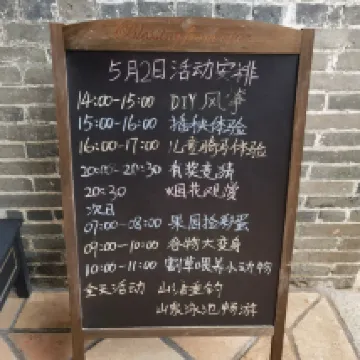 5月2日活动安排
14:00-15:00 DIY风筝
15:00-16:00 插秧体验
16:00-17:00 儿童骑马体验
20:00-20:30 有奖竞猜
20:30 烟花观赏
次日
07:00-08:00 果园捡彩蛋
09:00-10:00 谷物大变身
10:00-11:00 割草喂养小动物
全天活动 山塘垂钓
山泉泳池畅游